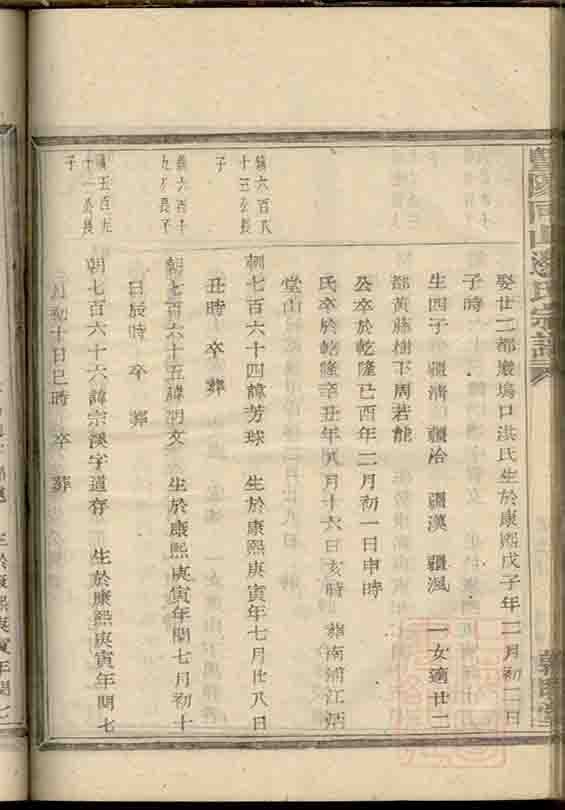 暨陽同山邊氏宗譜
娶廿二都嚴塢口洪氏生於康熙戊子年二月初二日
子時
生四子 疆濟 疆冶 疆漢 疆渢 一女適廿二
都黃藤樹下周若龍
公卒於乾隆己酉年二月初一日申時
氏卒於乾隆辛丑年八月十六日亥時 葬南浦江炳
堂山
鎮六百八
十三公長
子
朝七百六十四諱芳球 生於康熙庚寅年七月廿八日
丑時 卒 葬
義六百十
九公長子
朝七百六十五諱明文 生於康熙庚寅年閏七月初十
日辰時 卒 葬
鎮五百九
十一公長
子
朝七百六十六諱宗溪字道存 生於康熙庚寅年閏七
月初十日巳時 卒 葬
生於康熙庚寅年閏七